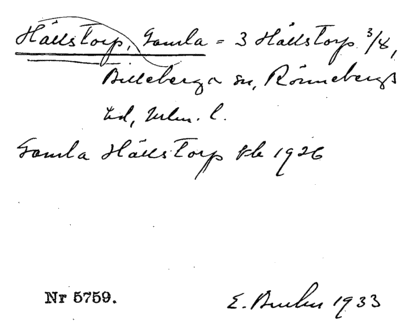 Hällstorp, Gamla = 3 Hällstorp 3/8,
Billeberga sn, Rönnebergs
hd, Mlm. l.
Gamla Hällstorp Ek 1926
Nr 5759.
E. 1933